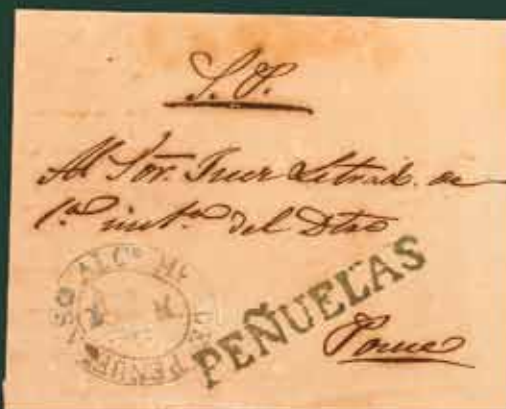 S. O.
Al Sor. Juez Letrado de
1ª insta del Dto
PEÑUELAS
Ponce